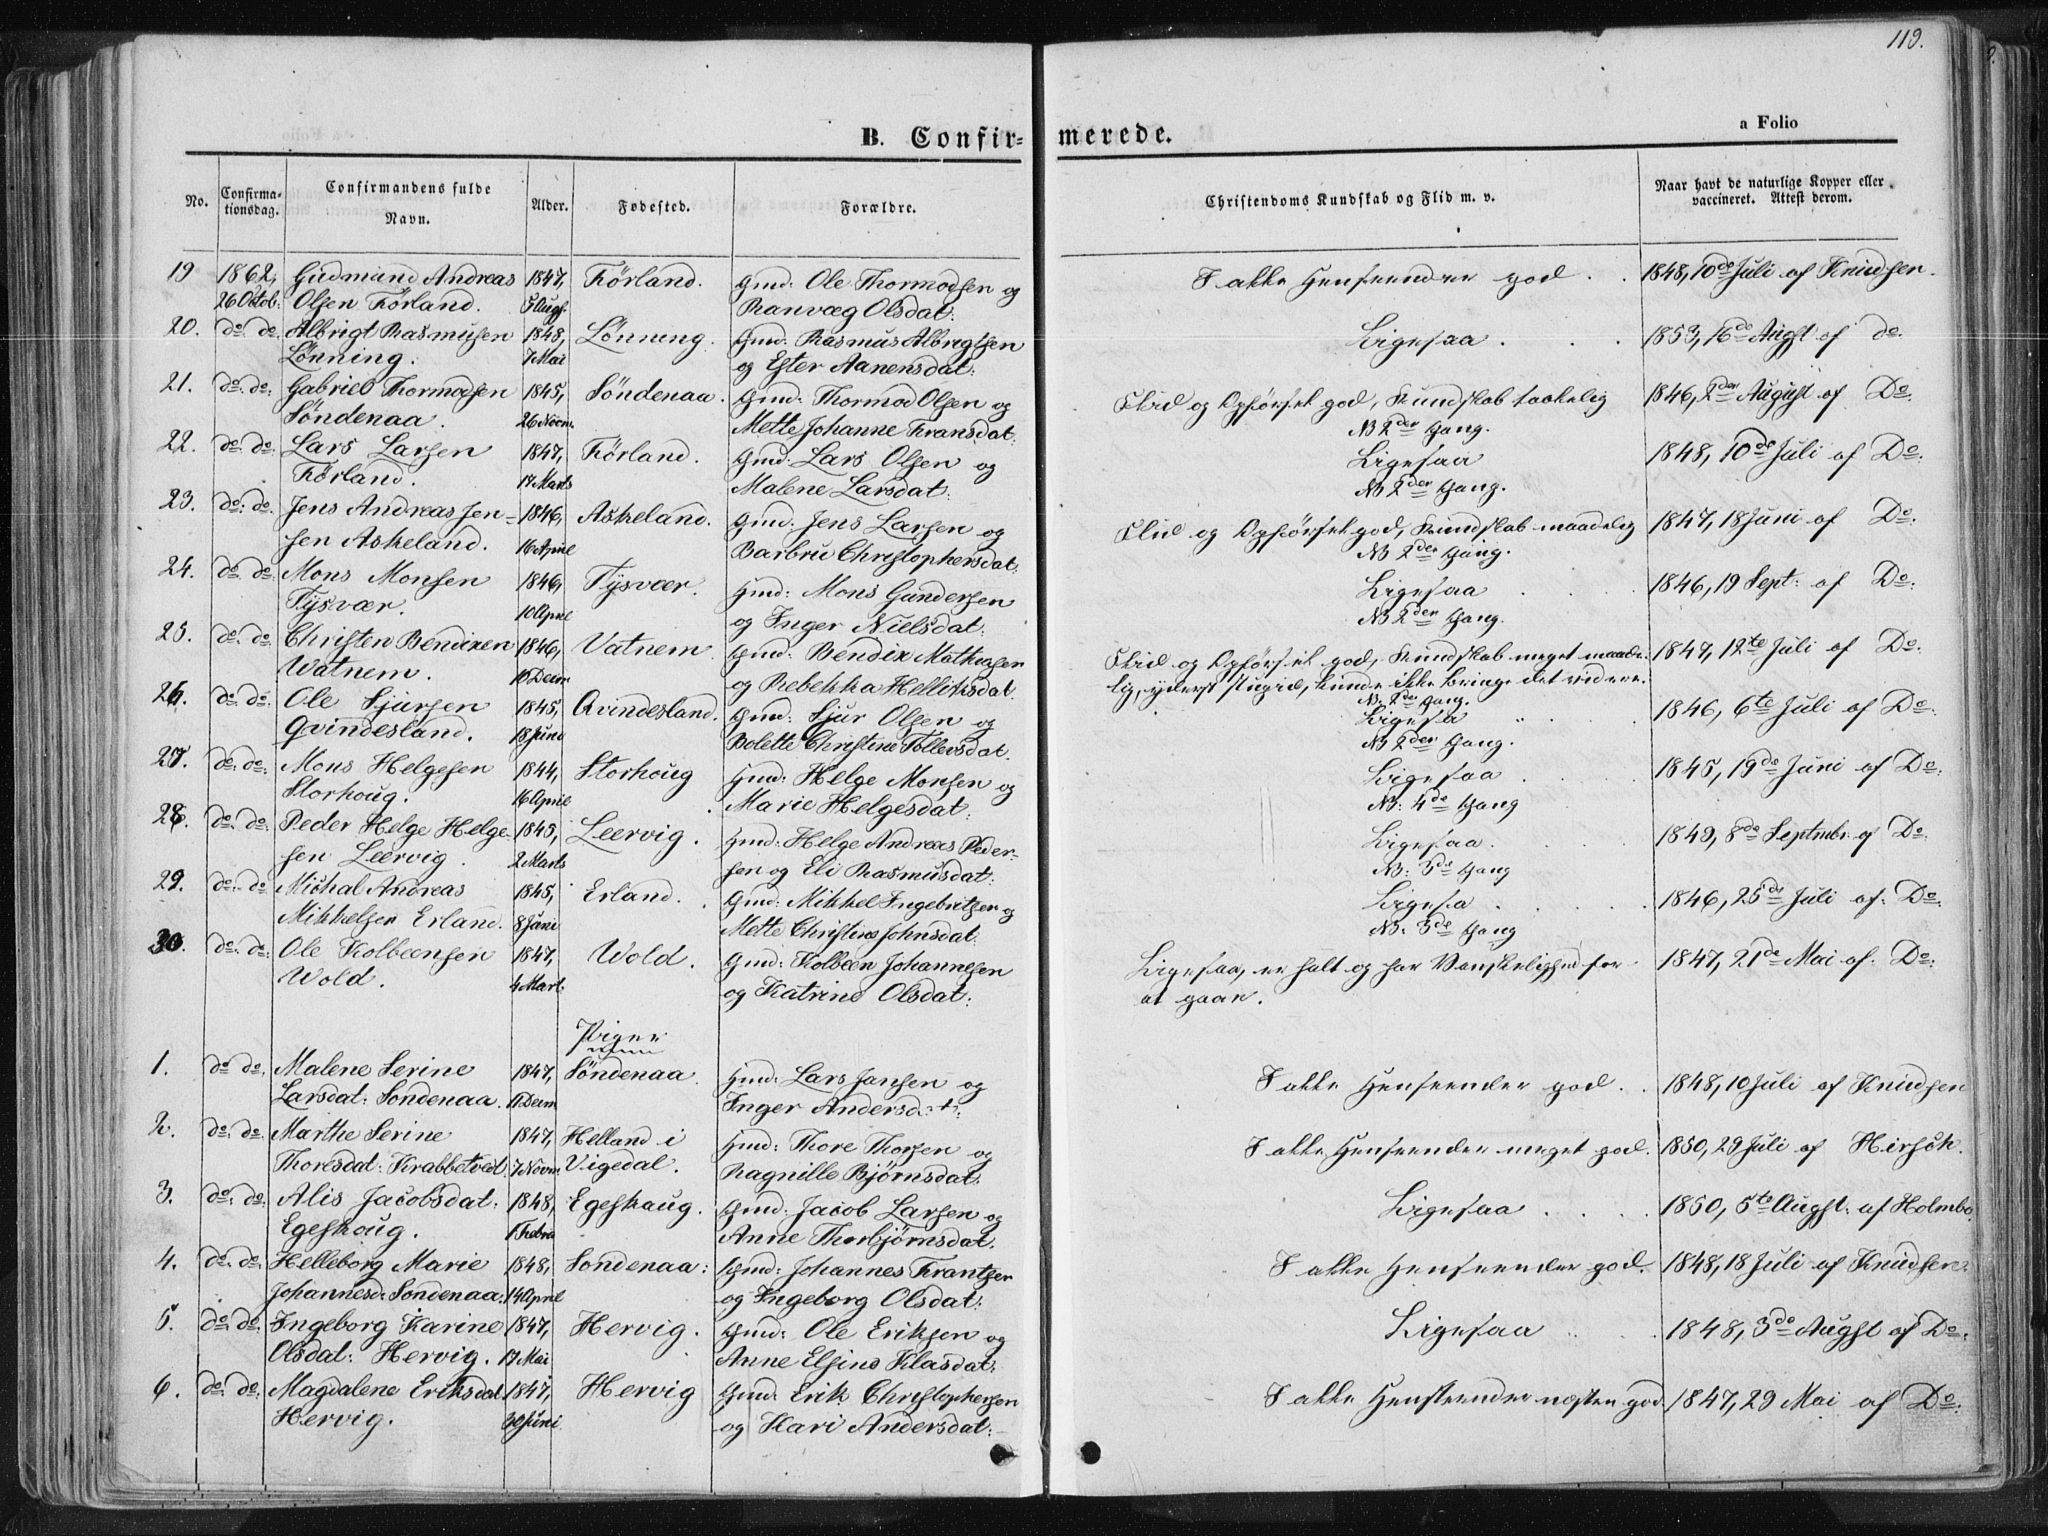 119.
B. Confir-
merede.
a Folio
No.
Confirma-
tionsdag.
Confirmandens fulde
Navn.
Alder.
Fødested.
Forældre.
Christendoms Kundskab og Flid m. v.
Naar havt de naturlige Kopper eller
vaccineret. Attest derom.
19 1862, Gudmund Andreas 1847, Førland. Gmd: Ole Thormodsen og I alle Henseender god . . 1848, 10de Juli af Knudsen.
26 Octob: Olsen Førland. 5 Augs. Ranvæg Olsdat:
20. do: do: Albrigt Rasmusen 1848, Lønning. Gmd: Rasmus Albrigtsen Ligesaa . . . 1853, 16de Augst af do:
Lønning. 7 Mai og Ester Aanensdat:
21. do: do: Gabriel Thormodsen 1845, Söndenaa. Gmd: Thormod Olsen og Flid og Opførsel god, Kundskab taalelig 1846, 2den August af Do:
Söndenaa. 26 Novm. Mette Johanne Fransdat: NB 2den Gang.
22. do: do: Lars Larsen 1847, Førland. Gmd: Lars Olsen og Ligesaa 1848, 10de Juli af Do:
Førland. 17 Marts Malene Larsdat: NB 2den Gang.
23. do: do: Jens Andreas Jen- 1846, Askeland. Gmd: Jens Larsen og Flid og Opførsel god, Kundskab maadelig 1847, 18 Juni af Do:
sen Askeland. 16 April Barbru Christophersdat: NB 2den Gang.
24. do: do: Mons Monsen 1846, Tysvær. Gmd: Mons Gundersen Ligesaa . . . 1846, 19 Sept: af Do:
Tysvær. 10 April og Inger Nielsdat: NB 2den Gang.
25. do: do: Christen Bendixen 1846, Vatnem Gmd: Bendix Mathiasen Flid og Opførsel god, Kundskab meget maade- 1847, 12te Juli af Do:
Watnem. 10 Decm og Rebekka Helliksdat. lig, yderst stupid, kunde ikke bringe det videre.
NB 2de Gang.
26. do: do: Ole Sjursen 1845, Qvindesland. Gmd: Sjur Olsen og Ligesa " . . 1846, 6te Juli af Do:
Qvindesland. 18 Juni Bolette Christine Tollevsdat. NB 2den Gang.
27. do: do: Mons Helgesen 1844, Storhoug Gmd: Helge Monsen og Ligesaa . . 1845, 19de Juni af Do:
Storhoug. 16 April Marie Helgesdat: NB: 4de Gang
28. do: do: Peder Helge Helge- 1845, Leervig. Gmd: Helge Andreas Peder- Ligesaa. . . . 1849, 8de Septmbr af Do:
sen Leervig. 2 Marts sen og Eli Rasmusdat: NB: 3de Gang
29. do: do Michal Andreas 1845, Erland. Gmd: Mikkel Ingebritsen og Ligesa . . . . 1846, 25de Juli af: Do:
Mikkelsen Erland. 8 Juni Mette Christine Johnsdat: NB: 3de Gang
30. do: do: Ole Kolbeensen 1847, Wold. Gmd: Kolbeen Johannesen Ligesaa, er halt og har Vanskelighed for 1847, 21de Mai af: Do:
Wold. 4 Mart. og Katrine Olsdat: at gaae.
Piger
1. do: do: Malene Serine 1847, Söndenaa. Gmd: Lars Jansen og I alle Henseender god . . 1848, 10 Juli af Knudsen
Larsdat: Sondenaa. 11 Decm Inger Andersdat:
2. do: do: Marthe Serine 1847, Helland i Gmd: Thore Thorsen og I alle Henseender meget god. 1850, 29 Juli af Hirsch.
Thoresdat: Krabbetvedt. 7 Novm. Vigedal. Ragnille Bjørnsdat:
3. do: do: Alis Jacobsdat: 1848, Egeshaug. Gmd: Jacob Larsen og Ligesaa . . . . 1850, 5te Augst: af Holmbo
Egeshoug. 1 Febru Anne Thorbjørnsdat.
4. do: do: Helleborg Marie 1848, Sondenaa: Gmd: Johannes Frantzen I alle Henseender god. 1848, 18 Juli af Knudsen.
Johannesd: Sondenaa. 14 April og Ingeborg Olsdat:
5. do: do: Ingeborg Karine 1847, Hervig. Gmd: Ole Eriksen og Ligesaa . . . 1848, 3de Augst af Do:
Olsdat: Hervig. 17 Mai Anne Elsine Klasdat:
6. do: do: Magdalene Eriksdat 1847, Hervig Gmd: Erik Christophersen I alle Henseender næsten god. 1847, 29 Mai af Do:
Hervig. 30 Juni og Kari Andersdat: